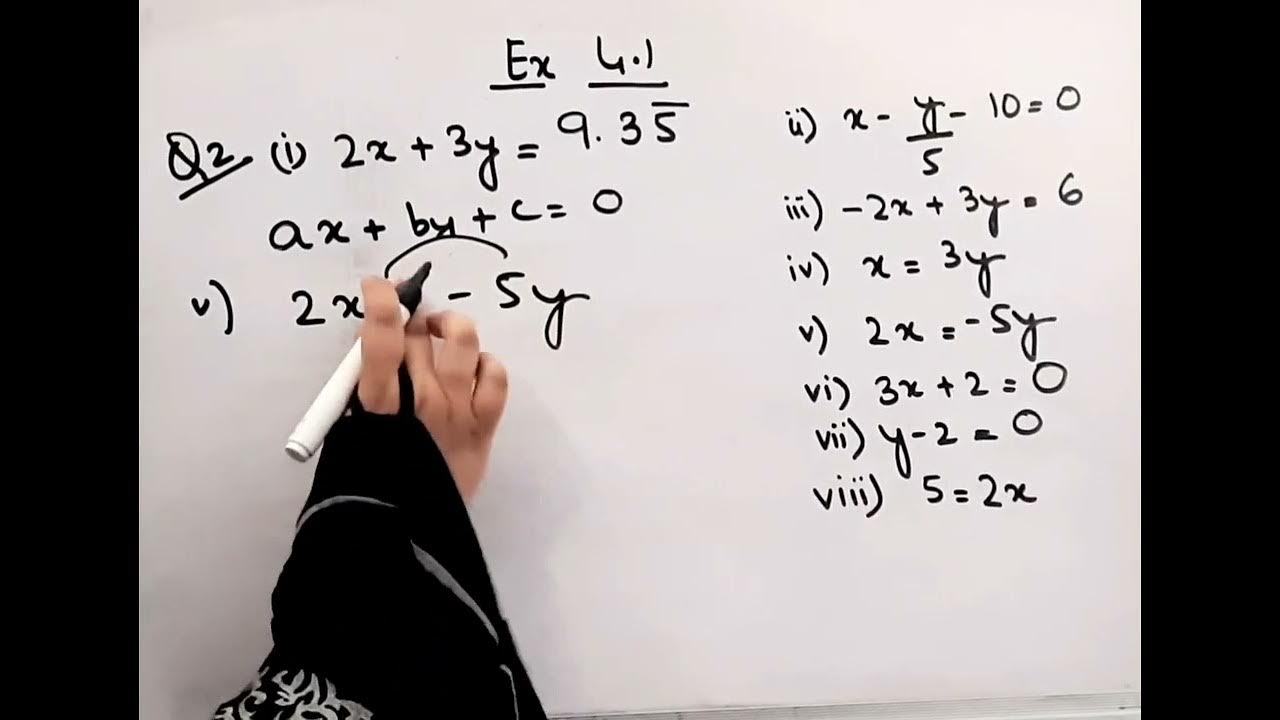 Ex 4.1
Q2 (i) 2x + 3y = 9.35̅
ax + by + c = 0
v) 2x - 5y
ii) x - y/5 - 10 = 0
iii) -2x + 3y = 6
iv) x = 3y
v) 2x = -5y
vi) 3x + 2 = 0
vii) y - 2 = 0
viii) 5 = 2x